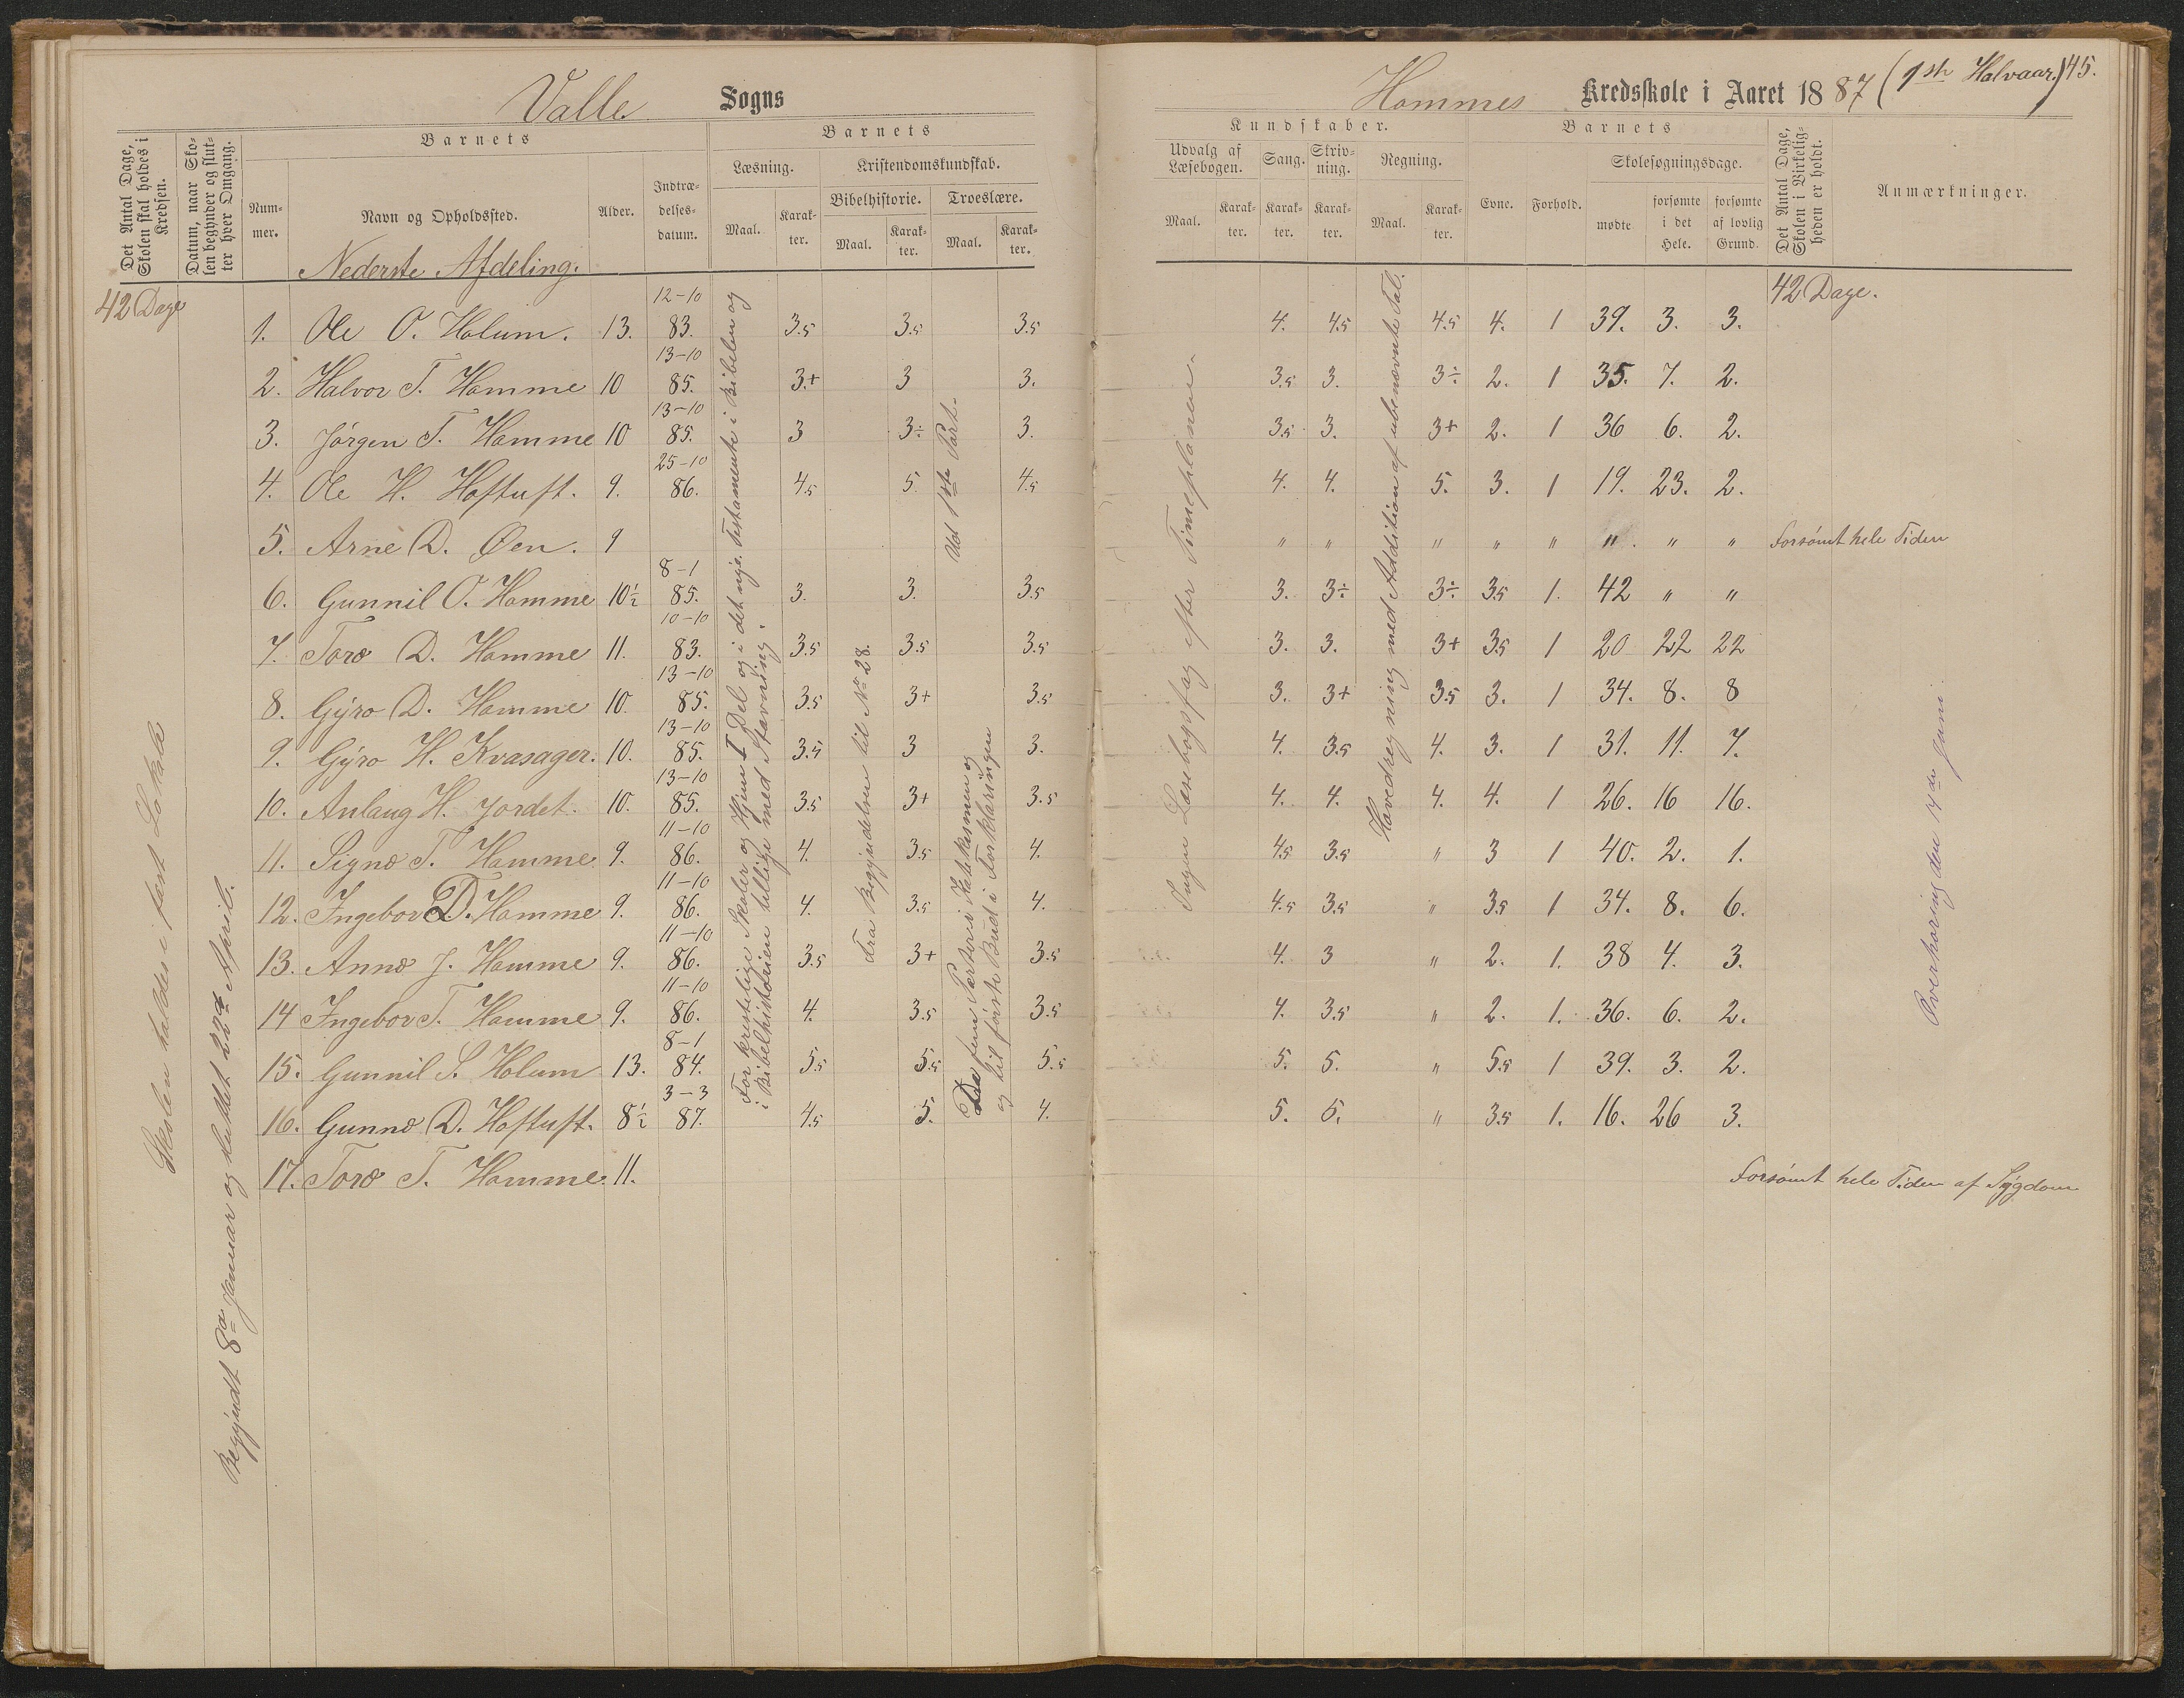 Valle Sogns
Det Antal Dage, Skolen skal holdes i Kredsen.
Datum, naar Skolen begynder og slutter hver Omgang.
Barnets
Nummer.
Navn og Opholdssted.
Alder.
Indtrædelsesdatum.
Barnets
Læsning.
Maal.
Karakter.
Kristendomskundskab.
Bibelhistorie.
Maal.
Karakter.
Troeslære.
Maal.
Karakter.
Nederste Afdeling.
42 Dage
1. Ole O. Holum. 13. 12-10 83. 3.5 3.5 3.5
2. Halvor T. Homme 10 13-10 85. 3.+ 3 3.
3. Jörgen T. Homme 10 13-10 85. 3 3÷ 3.
4. Ole H. Hoftuft. 9. 25-10 86. 4.5 5. 4.5
5. Arne D. Øen. 9
6. Gunnil O. Homme 10½ 8-1 85. 3. 3. 3.5
7. Toro D. Homme 11. 10-10 83. 3.5 3.5 3.5
8. Gyro D. Homme 10. 13-10 85. 3.5 3+ 3.5
9. Gyro H. Kvasager. 10. 13-10 85. 3.5 3 3.
10. Anlaug H. Jordet. 10. 13-10 85. 3.5 3+ 3.5
11. Signe T. Homme 9. 11-10 86. 4. 3.5 4.
12. Ingebor D. Homme 9. 11-10 86. 4. 3.5 4.
13. Anne J. Homme 9. 11-10 86. 3.5 3+ 3.5
14 Ingebor T. Homme 9. 11-10 86. 4. 3.5 3.5
15. Gunnil S. Holum 13. 8-1 84. 5.5 5.5 5.5
16. Gunne D. Hoftuft. 8½ 3-3 87. 4.5 5. 4.
17. Toro T. Homme. 11.
Skolen holdes i fast Lokale
Begyndt 8de Januar og sluttet 22de April.
For kristelige Skoler og Hjem I Del og i det nye Testamente i Bibelen og
i Bibelhistorien tillige med Stavning.
Fra Begyndelsen til No 28.
Ud 1ste Part.
De fem Parter i Katekismen og
og til første Bud i Forklaringen
Hommes Kredsskole i Aaret 1887 (1ste Halvaar.) 45.
Kundskaber.
Udvalg af Læsebogen.
Maal.
Karakter.
Sang.
Karakter.
Skrivning.
Karakter.
Regning.
Maal.
Karakter.
Barnets
Evne.
Forhold.
Skolesøgningsdage.
mødte
forsømte i det Hele.
forsømte af lovlig Grund.
Det Antal Dage, Skolen i Virkeligheden er holdt.
Anmærkninger.
42 Dage.
4. 4.5 4.5 4. 1 39. 3. 3.
3.5 3. 3÷ 2. 1 35. 7. 2.
3.5 3. 3+ 2. 1 36 6. 2.
4. 4. 5. 3. 1 19. 23. 2.
" " " " " " " " Forsömt hele Tiden
3. 3÷ 3÷ 3.5 1. 42 " "
3. 3. 3+ 3.5 1 20 22 22
3. 3+ 3.5 3. 1 34. 8. 8
4. 3.5 4. 3. 1 31. 11. 7.
4. 4. 4. 4. 1 26. 16 16.
4.5 3.5 " 3 1 40. 2. 1.
4.5 3.5 " 3.5 1 34. 8. 6.
4. 3 " 2. 1. 38 4. 3.
4. 3.5 " 2. 1. 36. 6. 2.
5. 5. " 5.5 1 39. 3. 2.
5. 5. " 3.5 1. 16. 26 3.
Forsömt hele Tiden af Sygdom
Ingen Læsebogsfag efter Timeplanen.
Hovedregning med Addition af ubenævnte Tal.
Overhöring den 14de Juni.